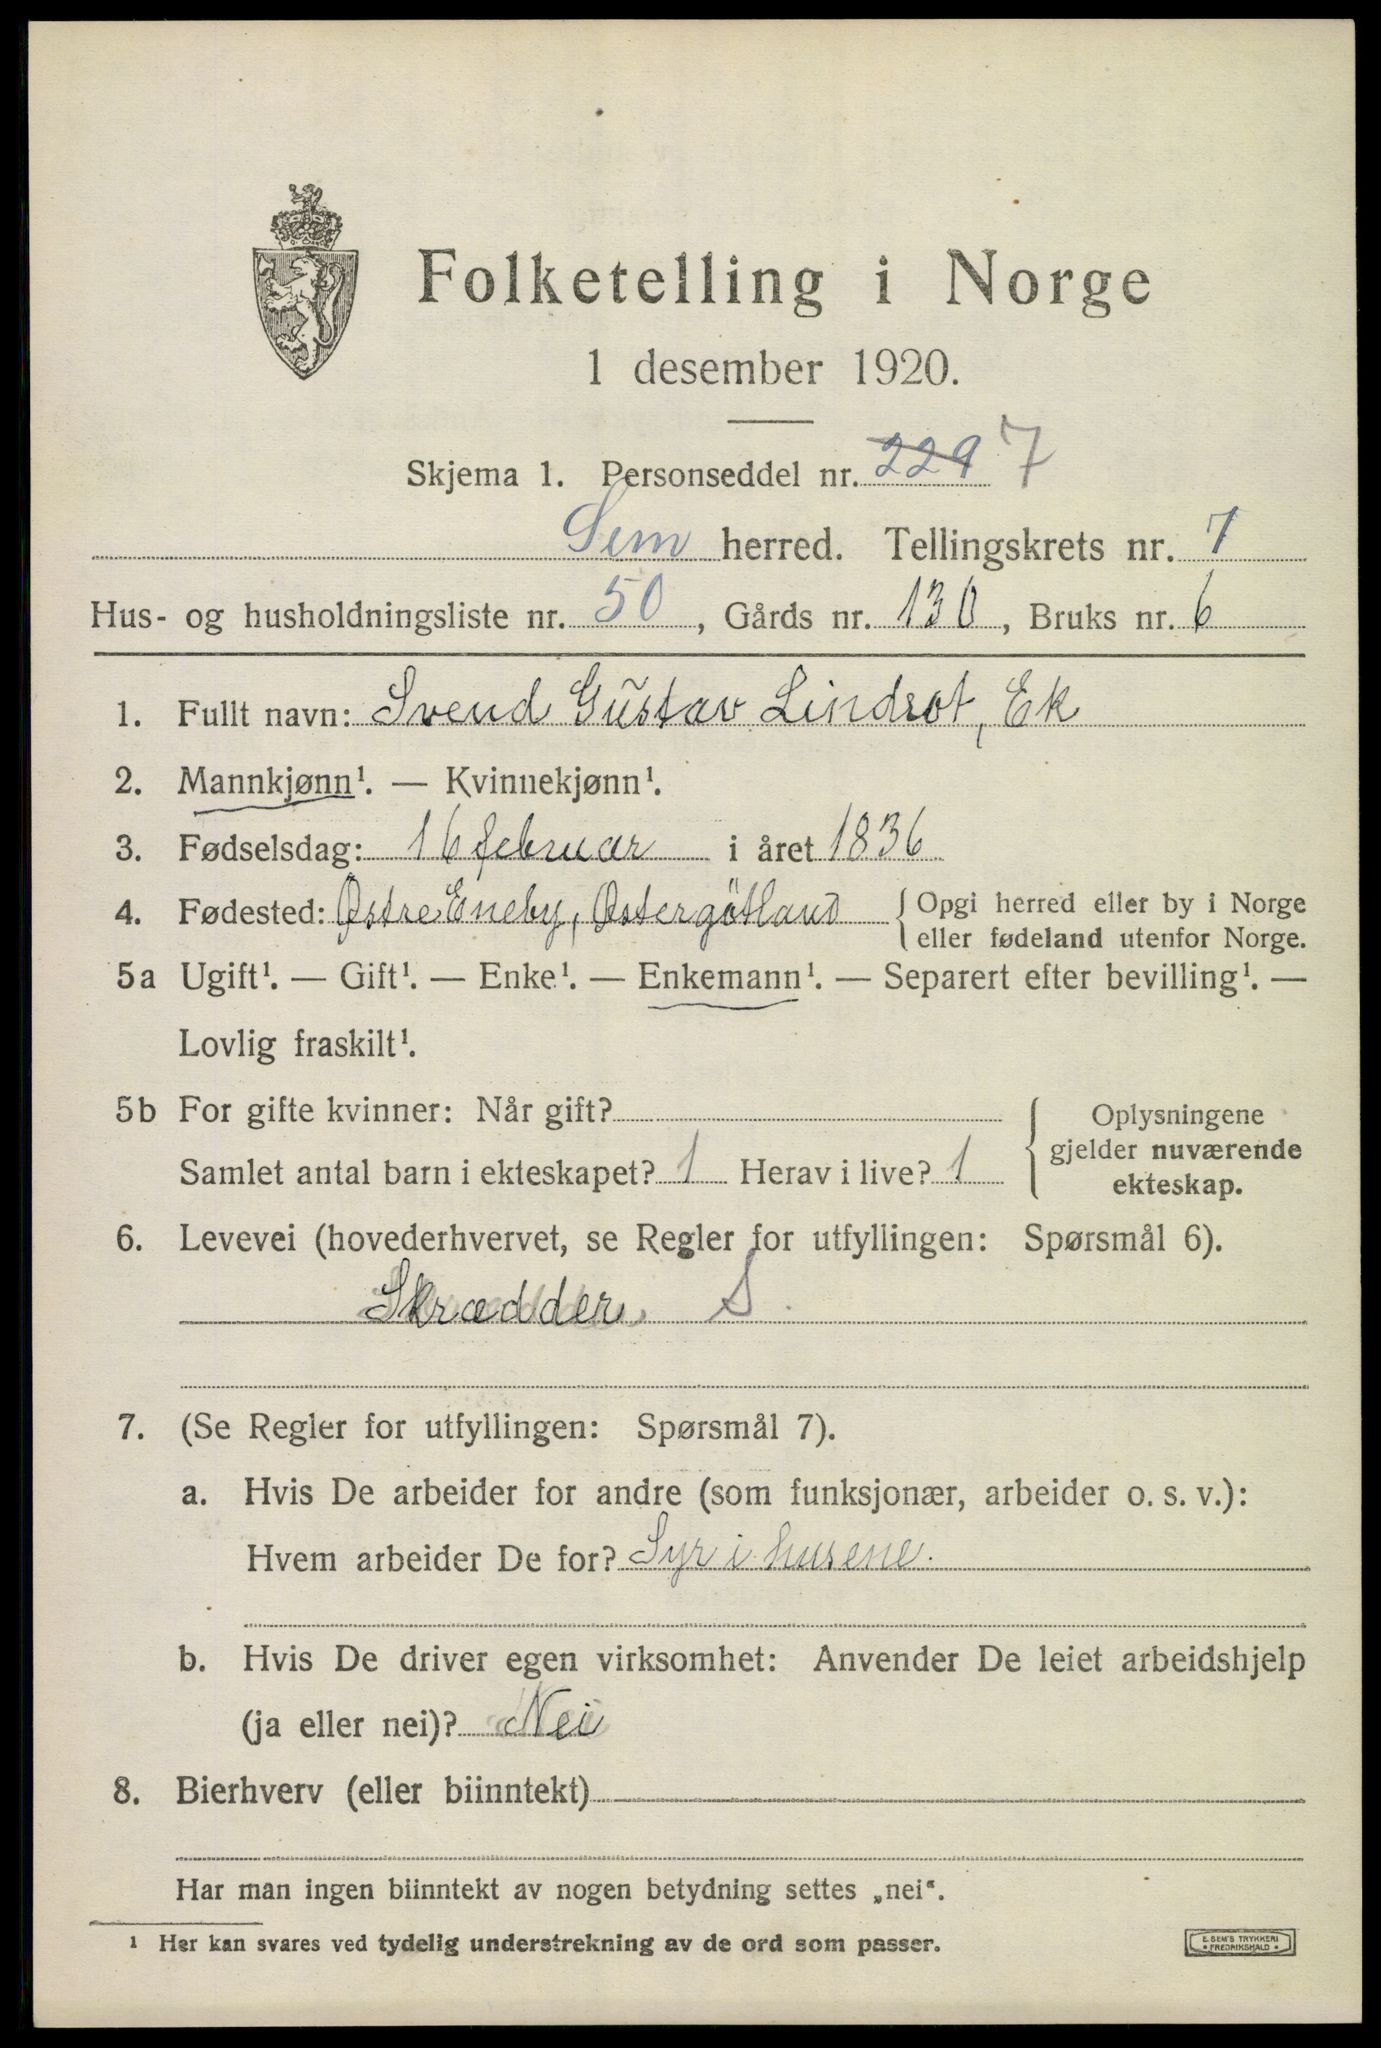 Folketelling i Norge
1 desember 1920.
Skjema 1. Personseddel nr. 229 7
Sem herred. Tellingskrets nr. 7
Hus- og husholdningsliste nr. 50, Gårds nr. 130, Bruks nr. 6
1. Fullt navn: Svend Gustav Lindrot, Ek
2. Mannkjønn¹. — Kvinnekjønn¹.
3. Fødselsdag: 16 februar i året 1836
4. Fødested: Østre Eneby, Østergötland { Opgi herred eller by i Norge
eller fødeland utenfor Norge.
5a Ugift¹. — Gift¹. — Enke¹. — Enkemann¹. — Separert efter bevilling¹. —
Lovlig fraskilt¹.
5b For gifte kvinner: Når gift?
Samlet antal barn i ekteskapet? 1 Herav i live? 1
Oplysningene
gjelder nuværende
ekteskap.
6. Levevei (hovederhvervet, se Regler for utfyllingen: Spørsmål 6).
Skrædder S
7. (Se Regler for utfyllingen: Spørsmål 7).
a. Hvis De arbeider for andre (som funksjonær, arbeider o. s. v.):
Hvem arbeider De for? Syr i husene.
b. Hvis De driver egen virksomhet: Anvender De leiet arbeidshjelp
(ja eller nei)? Nei
8. Bierhverv (eller biinntekt)
Har man ingen biinntekt av nogen betydning settes „nei“.
¹ Her kan svares ved tydelig understrekning av de ord som passer.
E. SEM'S TRYKKERI
• FREDRIKSHALD •